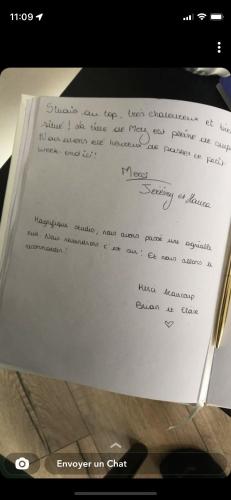 11:09
Studio au top, très chaleureux et bien
situé ! La ville de Metz est pleine de
Nous avons été heureux de passer ce petit
week-end ici !
Merci
Jérémy et Laura
Magnifique studio, nous avons passé une agréable
nuit. Nous reviendrons c'est sur ! Et nous allons le
recommander !
Merci beaucoup
Brian et
Envoyer un Chat